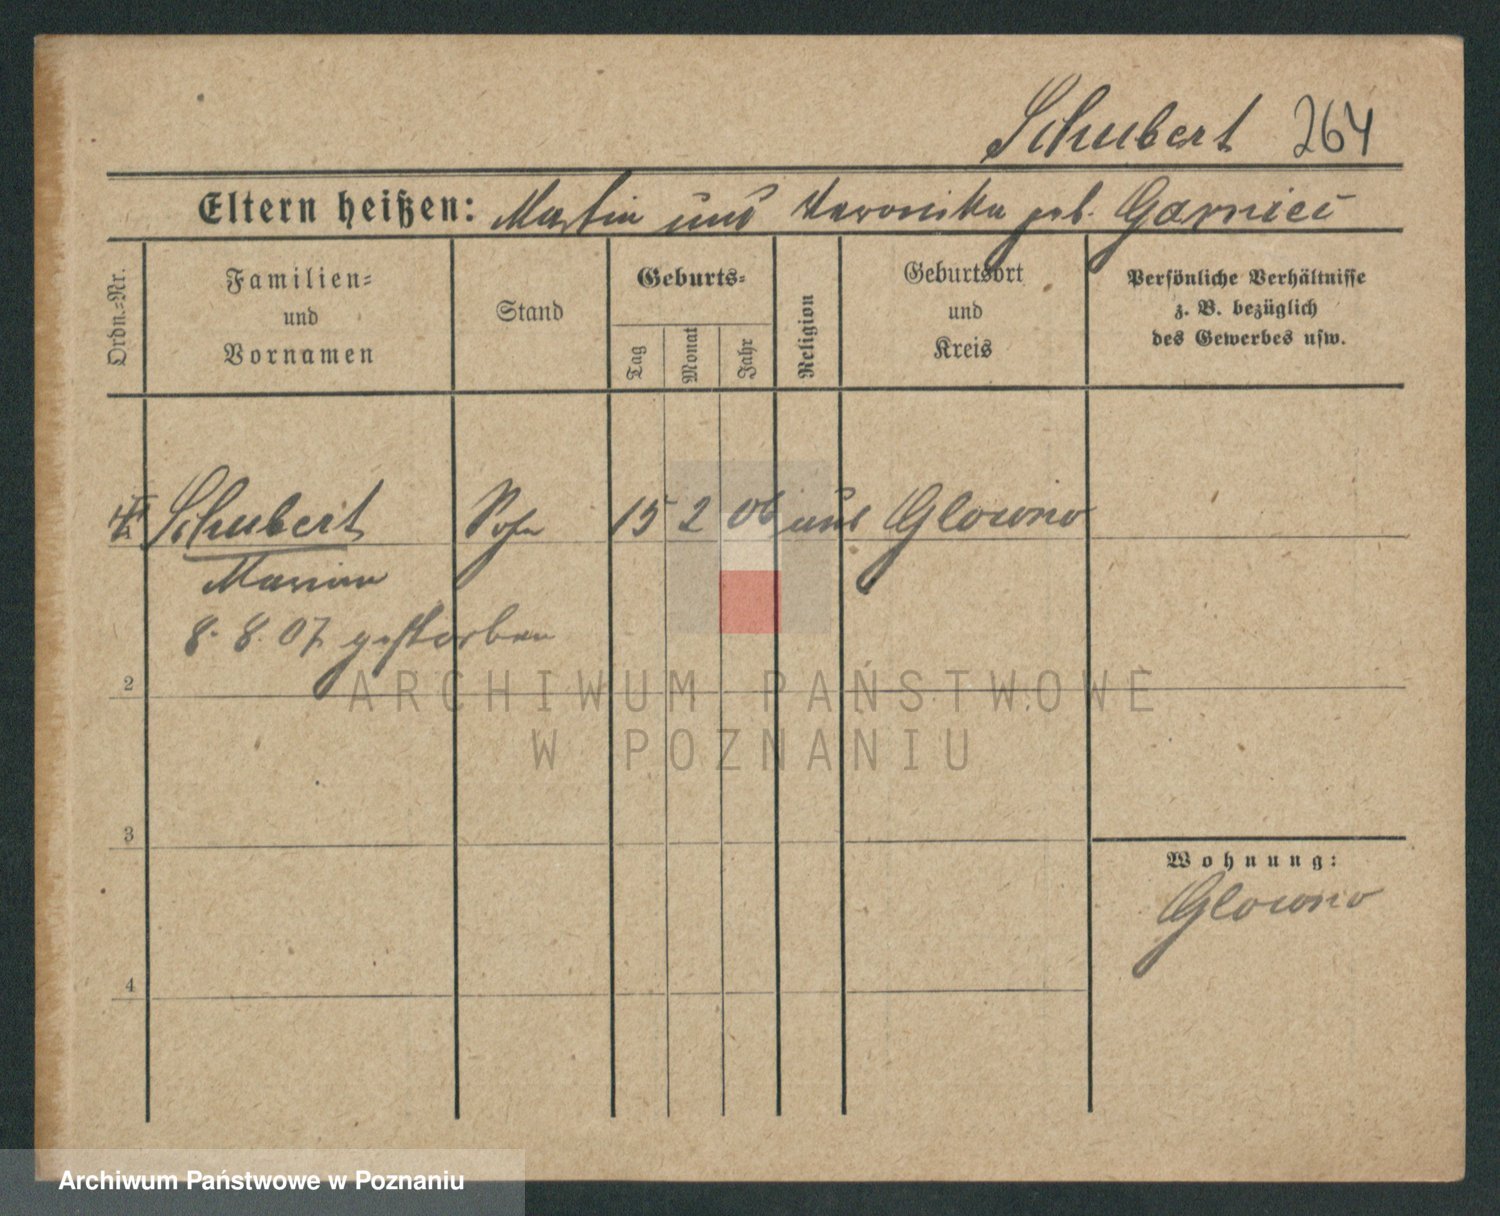 Schubert 264
Eltern heißen: Martin und Veronika geb. Garnier
Ordn.-Nr.
Familien-
und
Vornamen
Stand
Geburts-
Tag
Monat
Jahr
Religion
Geburtsort
und
Kreis
Persönliche Verhältnisse
z. B. bezüglich
des Gewerbes usw.
Schubert Sohn 15 2 06 Glowno
Marian
8. 8. 07 gestorben
2
3
4
Wohnung:
Glowno
ARCHIWUM PAŃSTWOWE
W POZNANIU
Archiwum Państwowe w Poznaniu